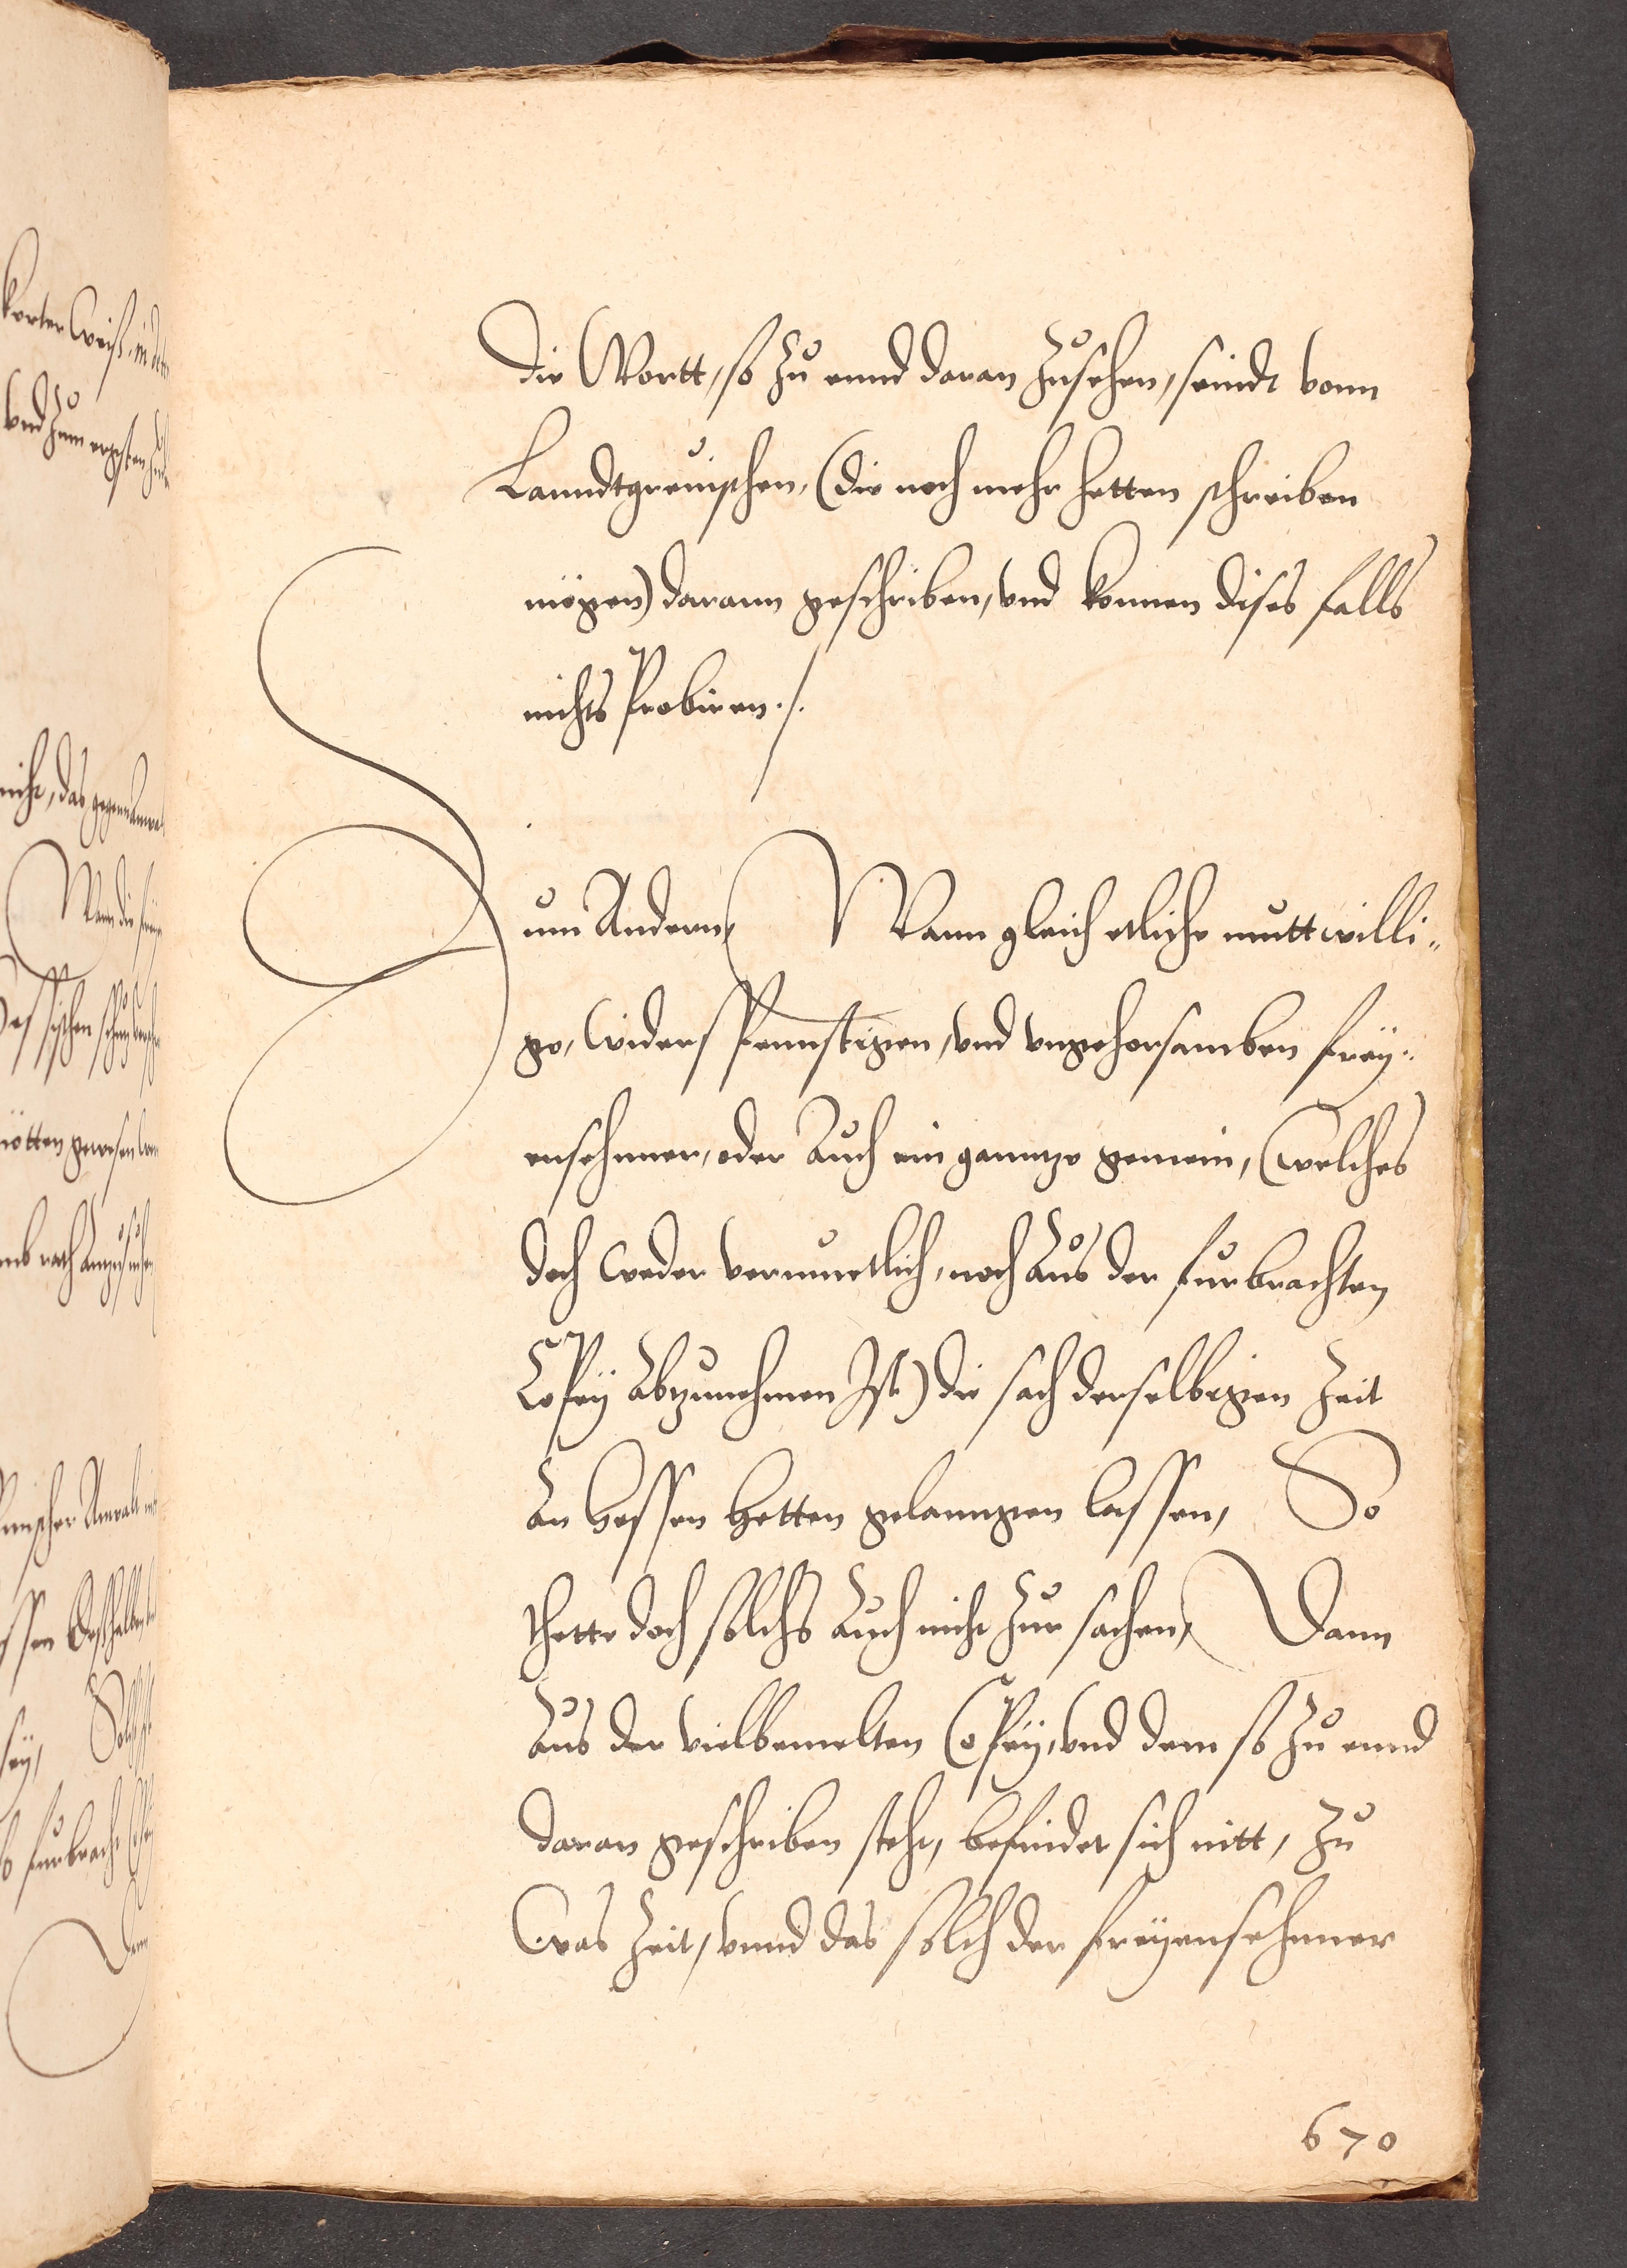 Die Wortt, so zu ennd daran zusehen, seindt vonn
Lanndtgreuischen, (die noch mehr hetten schreiben
mögen) darann geschriben, vnd konnen dises falls
nichts Probiren ./.
Zum Andern, Wann gleich etliche muttwilli„
ge, widerspennstigen, vnd vngehorsamben frey„
ensehner, oder Auch ein ganntze gemein, (welches
doch weder vermuetlich, noch Aus der furbrachten
Copey Abzunehmen Ist) die sach derselbigen Zeit
An Hessen hetten gelanngen lassen, So
thette doch solchs Auch nicht zur sachen, Dann
Aus der vielbemelten Copey, vnd dem so zu ennd
daran geschriben steht, befindet sich nitt, zu
was Zeit, vnnd das solch der freyensehner
670